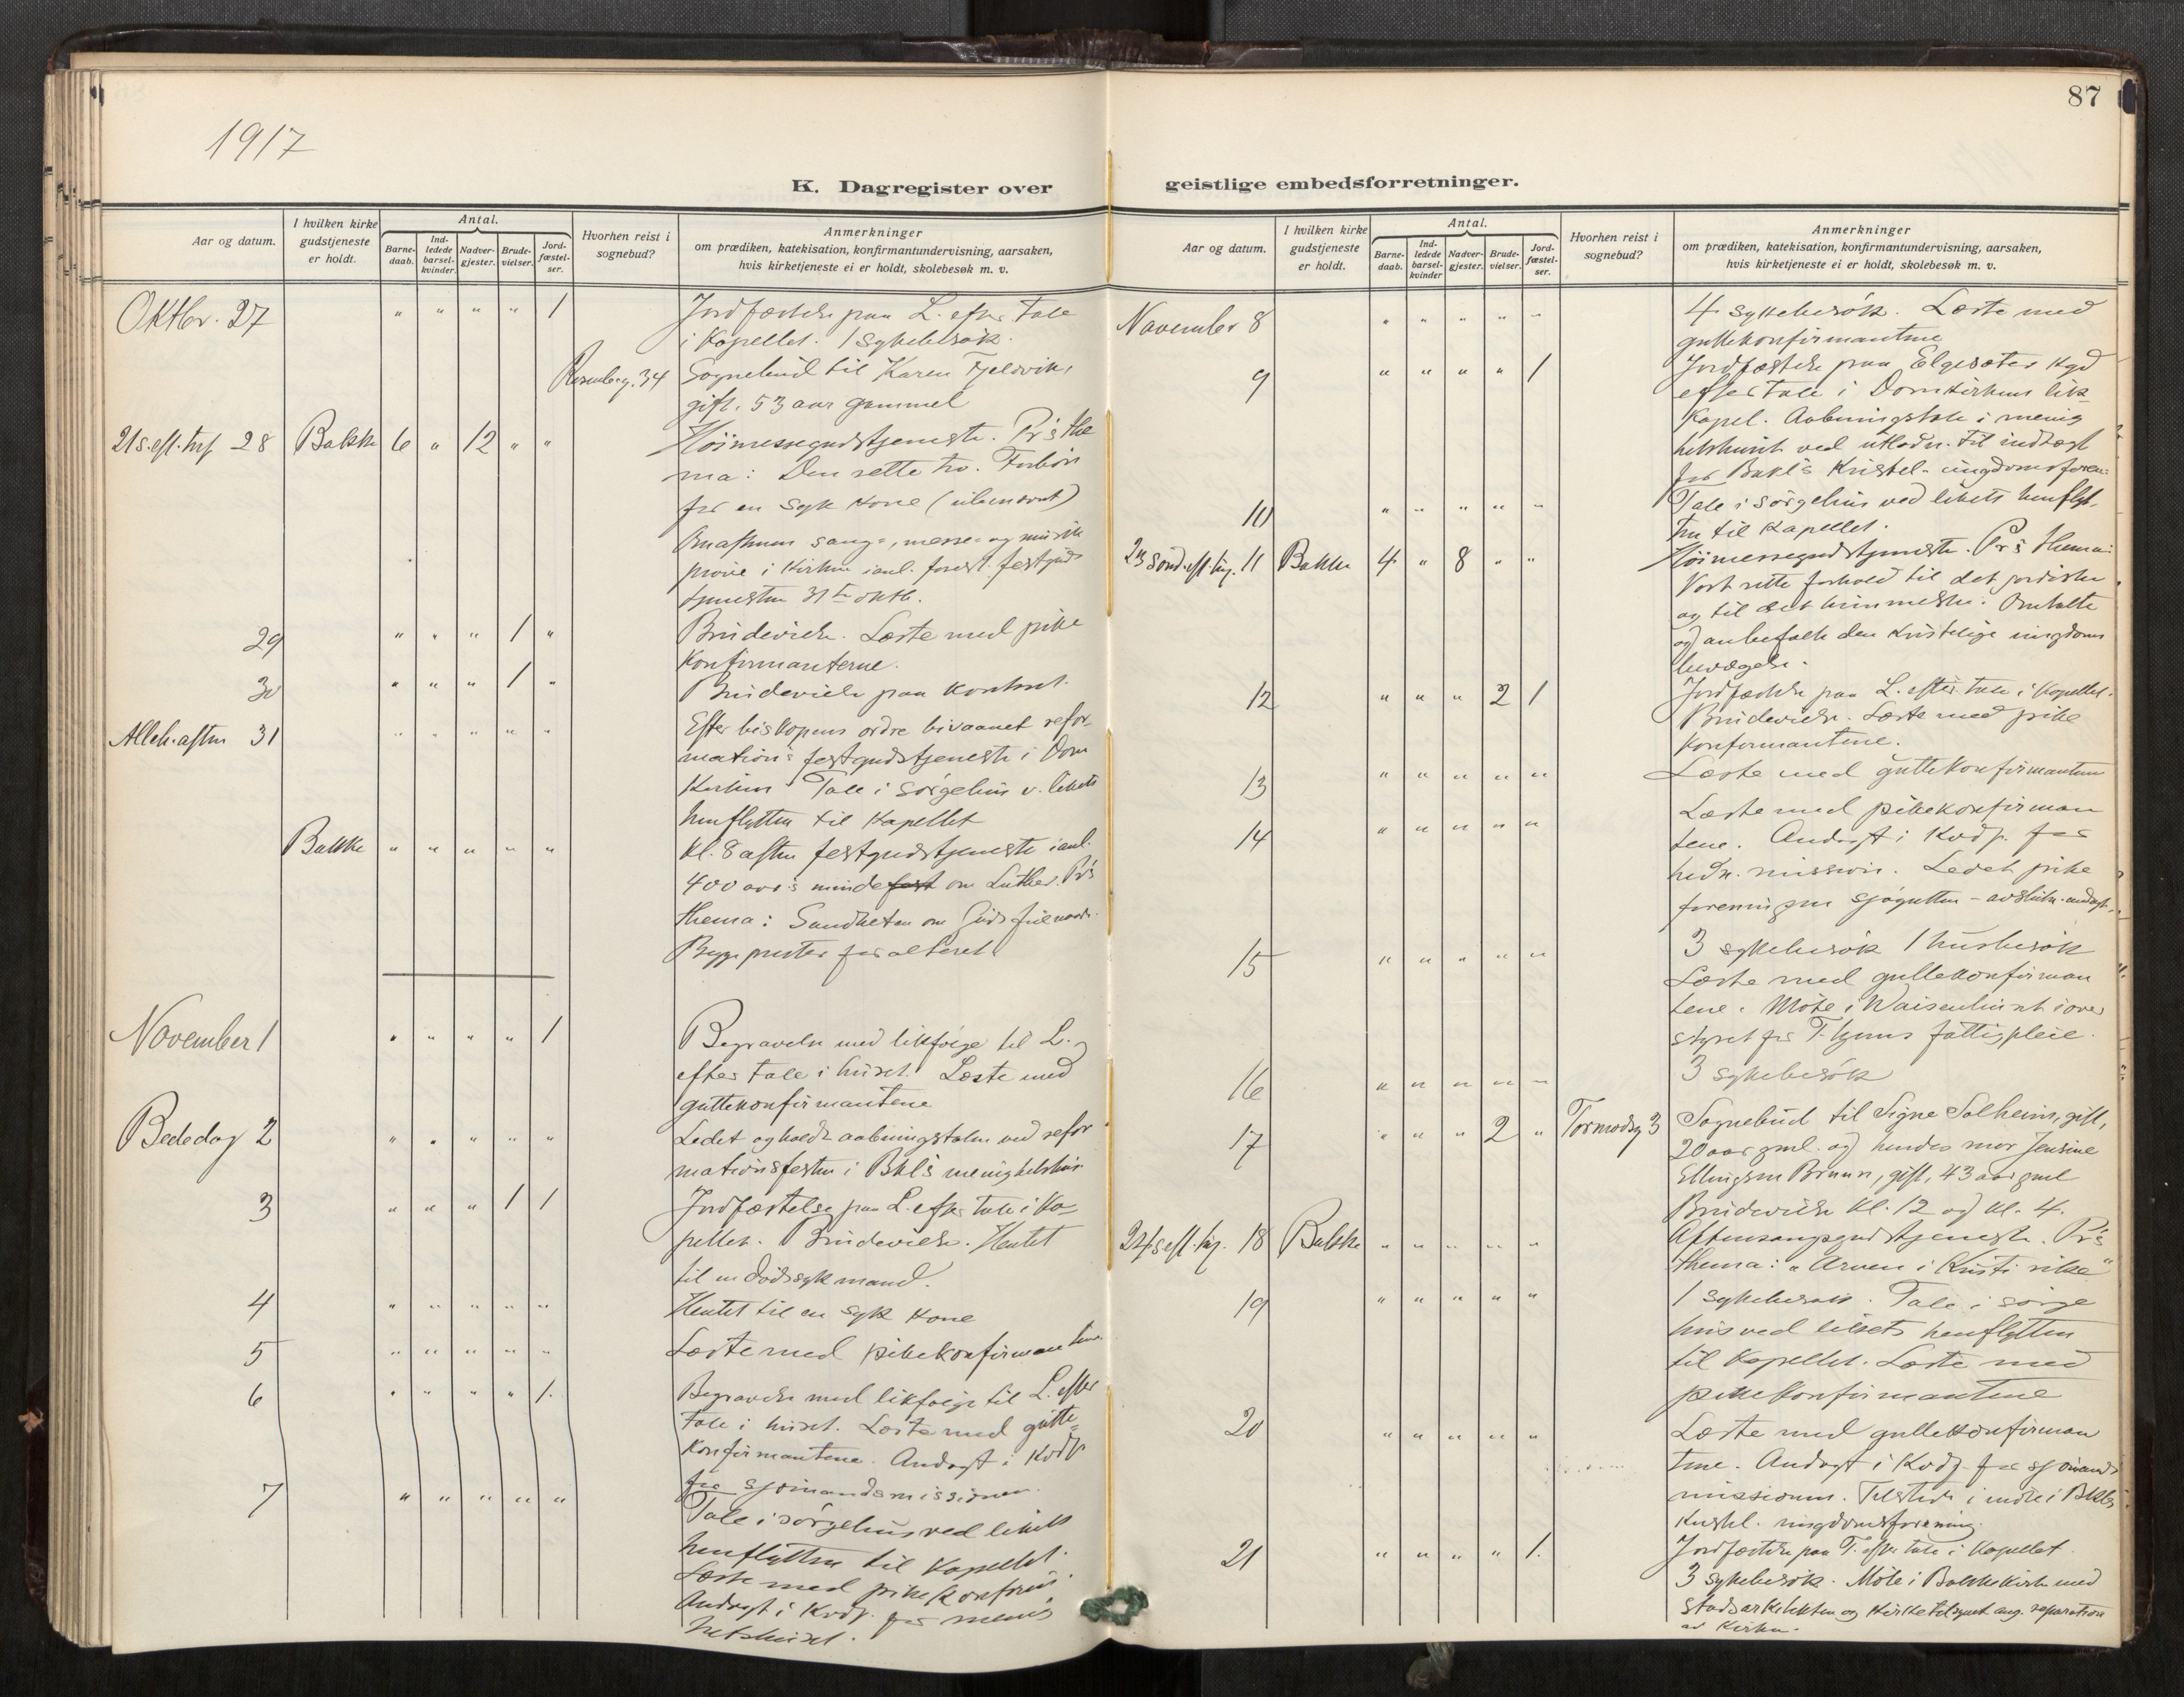 1917
K. Dagregister over
Aar og datum.
I hvilken kirke gudstjeneste er holdt.
Antal.
Barne-daab.
Ind-ledede barsel-kvinder.
Nadver-gjester.
Brude-vielser.
Jord-fæstel-ser.
Hvorhen reist i sognebud?
Anmerkninger
om prædiken, katekisation, konfirmantundervisning, aarsaken,
hvis kirketjeneste ei er holdt, skolebesøk m. v.
Oktbr. 27 " " " " 1 Jordfæstelse paa L. efter tale
i Kapellet. 1 sykebesøk.
Rosenbg. 34 Sognebud til Karen Fjeldvik,
gift, 53 aar gammel
21 s. eft. tref 28 Bakke 6 " 12 " " Höimessegudstjeneste. Pr's the
ma: Den rette tro. Forbön
for en syk kone (ubenævnt)
sang-, messe- og musik
pröve i Kirken i anl. forest. festguds
tjenesten 31te oktb.
29 " " " 1 " Brudevielse. Læste med pike
konfirmanterne.
30 " " " 1 " Brudevielse paa kontoret.
Alleh. aften 31 " " " " " Efter biskopens ordre bivaanet refor-
mations festgudstjeneste i Dom
Kirken. Tale i sörgehus v. likets
henflytten til Kapellet
Bakke " " " " " Kl. 8 aften festgudstjeneste i anl.
400 aars mindefest om Luther. Pr's
thema: Sandheten om Guds frie naade.
Begge prester for alteret
November 1 " " " " 1 Begravelse med likfölge til L.
efter tale i huset. Læste med
guttekonfirmantene
Bededag 2 " " " " " Ledet og holdt aabningstalen ved refor
mationsfesten i Bkl's menighetshus
3 " " " 1 1 Jordfæstelse paa L. efter tale i Ka-
pellet. Brudevielse. Hentet
til en dödssyk mand.
4 " " " " " Hentet til en syk kone
5 " " " " " Læste med pikekonfirmantene
6 " " " " 1. Begravelse med likfölge til L. efter
tale i huset. Læste med gutte-
konfirmantene. Andagt i Kvdf
for sjömandsmissionen.
7 " " " " " Tale i sörgehus ved likets
henflytten til Kapellet.
Læste med pikekonfirm.
Andagt i Kvdf. for menig
hetshuset.
87
geistlige embedsforretninger.
Aar og datum.
I hvilken kirke gudstjeneste er holdt.
Antal.
Barne-daab.
Ind-ledede barsel-kvinder
Nadver-gjester.
Brude-vielser.
Jord-fæstel-ser.
Hvorhen reist i sognebud?
Anmerkninger
om prædiken, katekisation, konfirmantundervisning, aarsaken,
hvis kirketjeneste ei er holdt, skolebesøk m. v.
November 8 " " " " " 4 sykebesök. Læste med
guttekonfirmantene
9 " " " " 1 Jordfæstelse paa Elgesæter kgd
efter tale i Domkirkens lik
kapel. Aabningstale i menig
hetshuset ved utlodn. til indtægt
for Bakl's Kristel. ungdomsforen:
10 " " " " " Tale i sörgehus ved likets henflyt-
ten til Kapellet.
23 sönd. eft. trg. 11 Bakke 4 " 8 " " Höimessegudstjeneste. Pr's thema:
Vort rette forhold til det jordiske
og til det himmelske. Omtalte
og anbefalte den kristelige ungdoms
bevægelse.
12 " " " 2 1 Jordfæstelse paa L. efter tale i Kapellet.
Brudevielse. Læste med pike
konfirmantene.
13 " " " " " Læste med guttekonfirmantene
14 " " " " " Læste med pikekonfirman
tene. Andagt i Kvdf. for
hedn. mission. Ledet pike
foreningen
15 " " " " " 3 sykebesök 1 husbesök
Læste med guttekonfirman
tene. Möte i Waisenhuset i over
styret for T.hjems fattigpleie.
16 " " " " " 3 sykebesök
17 " " " 2 " Tormodsg 3 Sognebud til Signe Solheim, gift,
20 aar gml. og hendes mor Jensine
Ellingsen Bruun, gift, 43 aar gml
Brudevielse kl. 12 og kl. 4.
24 s. eft. trg. 18 Bakke " " " " " Aftensangsgudstjeneste. Pr's
thema: "Arven i Kristi rike"
19 " " " " " 1 sykebesök. Tale i sörge
hus ved likets henflytten
til Kapellet. Læste med
pikekonfirmantene
20 " " " " " Læste med guttekonfirman
tene. Andagt i Kvdf. for sjömands
missionen. Tilstede i möte i Bkls
Kristel. ungdomsforening.
21 " " " " 1. Jordfæstelse paa T. efter tale i Kapellet.
3 sykebesök. Möte i Bakke Kirke med
stadsarkitekten og Kirketilsynet ang. reparation
av Kirken.